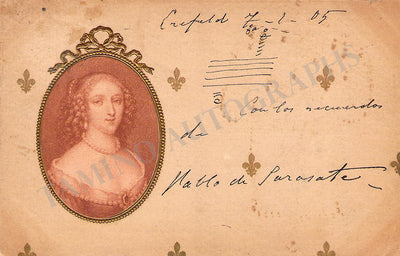 Crefeld 7-2-05
Con los recuerdos
de
Pablo de Sarasate
TAMINO AUTOGRAPHS